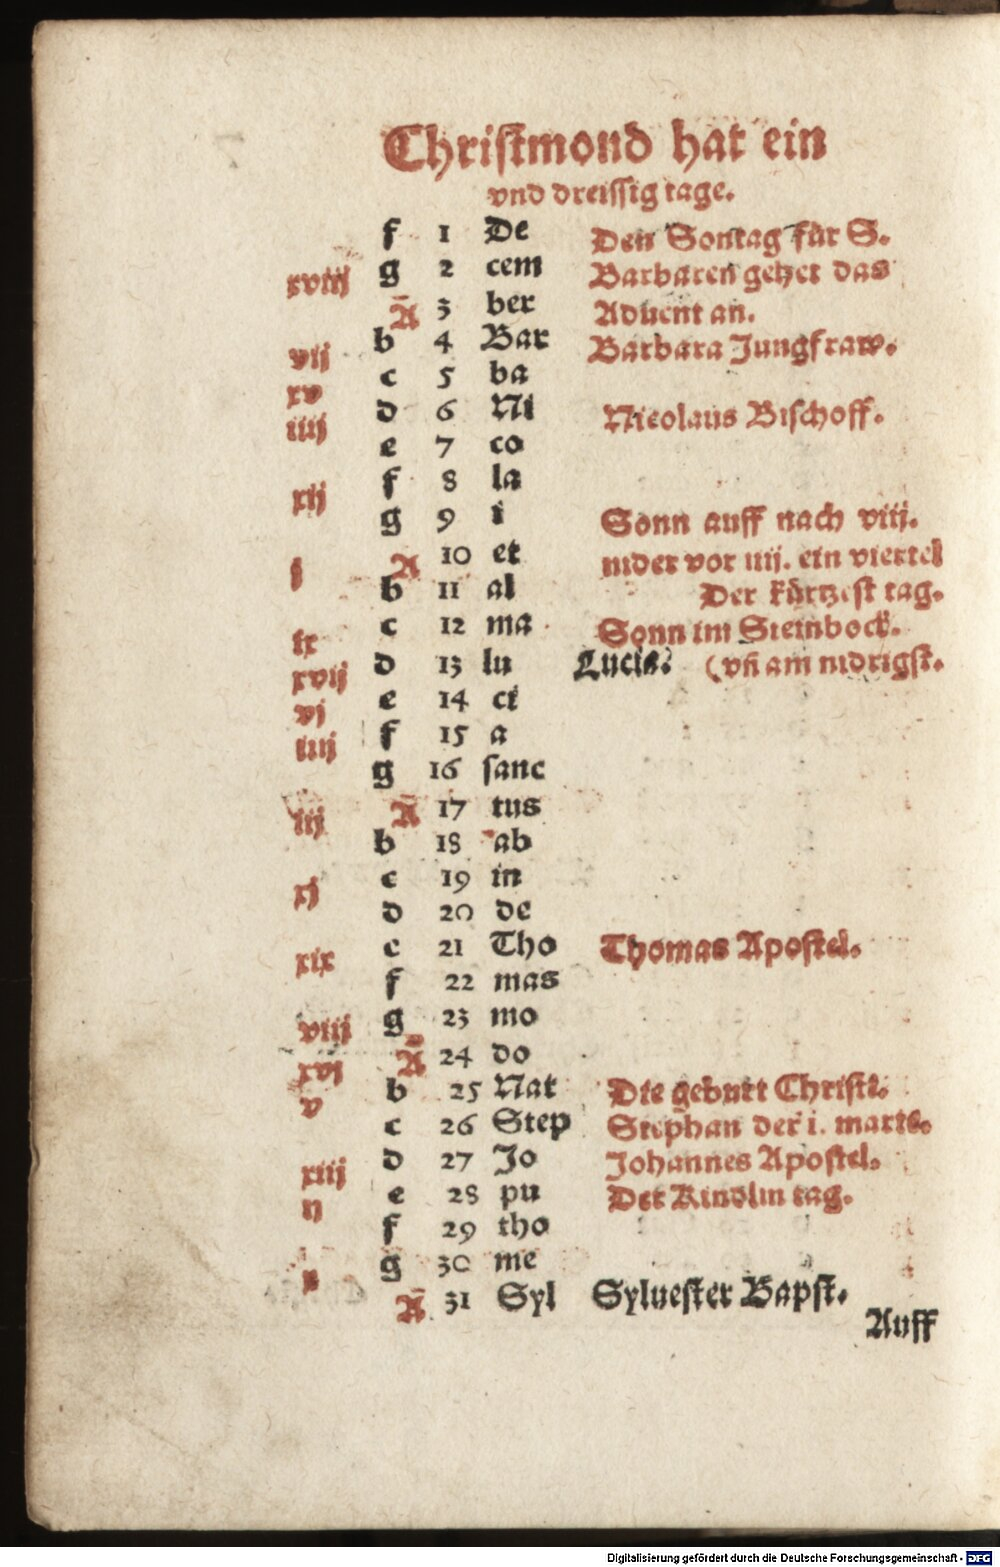 Christmond hat ein
vnd dreissig tage.
f 1 De Den Sontag für S.
xviij g 2 cem Barbaren gehet das
A 3 ber Aduent an.
b 4 Bar Barbara Jungfraw.
vij c 5 ba
xv d 6 Ni Nicolaus Bischoff.
iiij e 7 co
f 8 la
xij g 9 i Sonn auff nach viij.
A 10 et nider vor iiij. ein viertel
j b 11 al Der kürtzest tag.
c 12 ma Sonn im Steinbock.
ix d 13 lu Lucia. (vñ am nidrigst.
xvij e 14 ci
vj f 15 a
iiij g 16 sanc
A 17 tus
iij b 18 ab
c 19 in
xj d 20 de
e 21 Tho Thomas Apostel.
xix f 22 mas
g 23 mo
viij A 24 do
xvj b 25 Nat Die geburt Christi.
v c 26 Step Stephan der i. marte.
d 27 Jo Johannes Apostel.
xiij e 28 pu Der Kindlin tag.
ij f 29 tho
g 30 me
A 31 Syl Syluester Bapst.
Auff
Digitalisierung gefördert durch die Deutsche Forschungsgemeinschaft - DFG